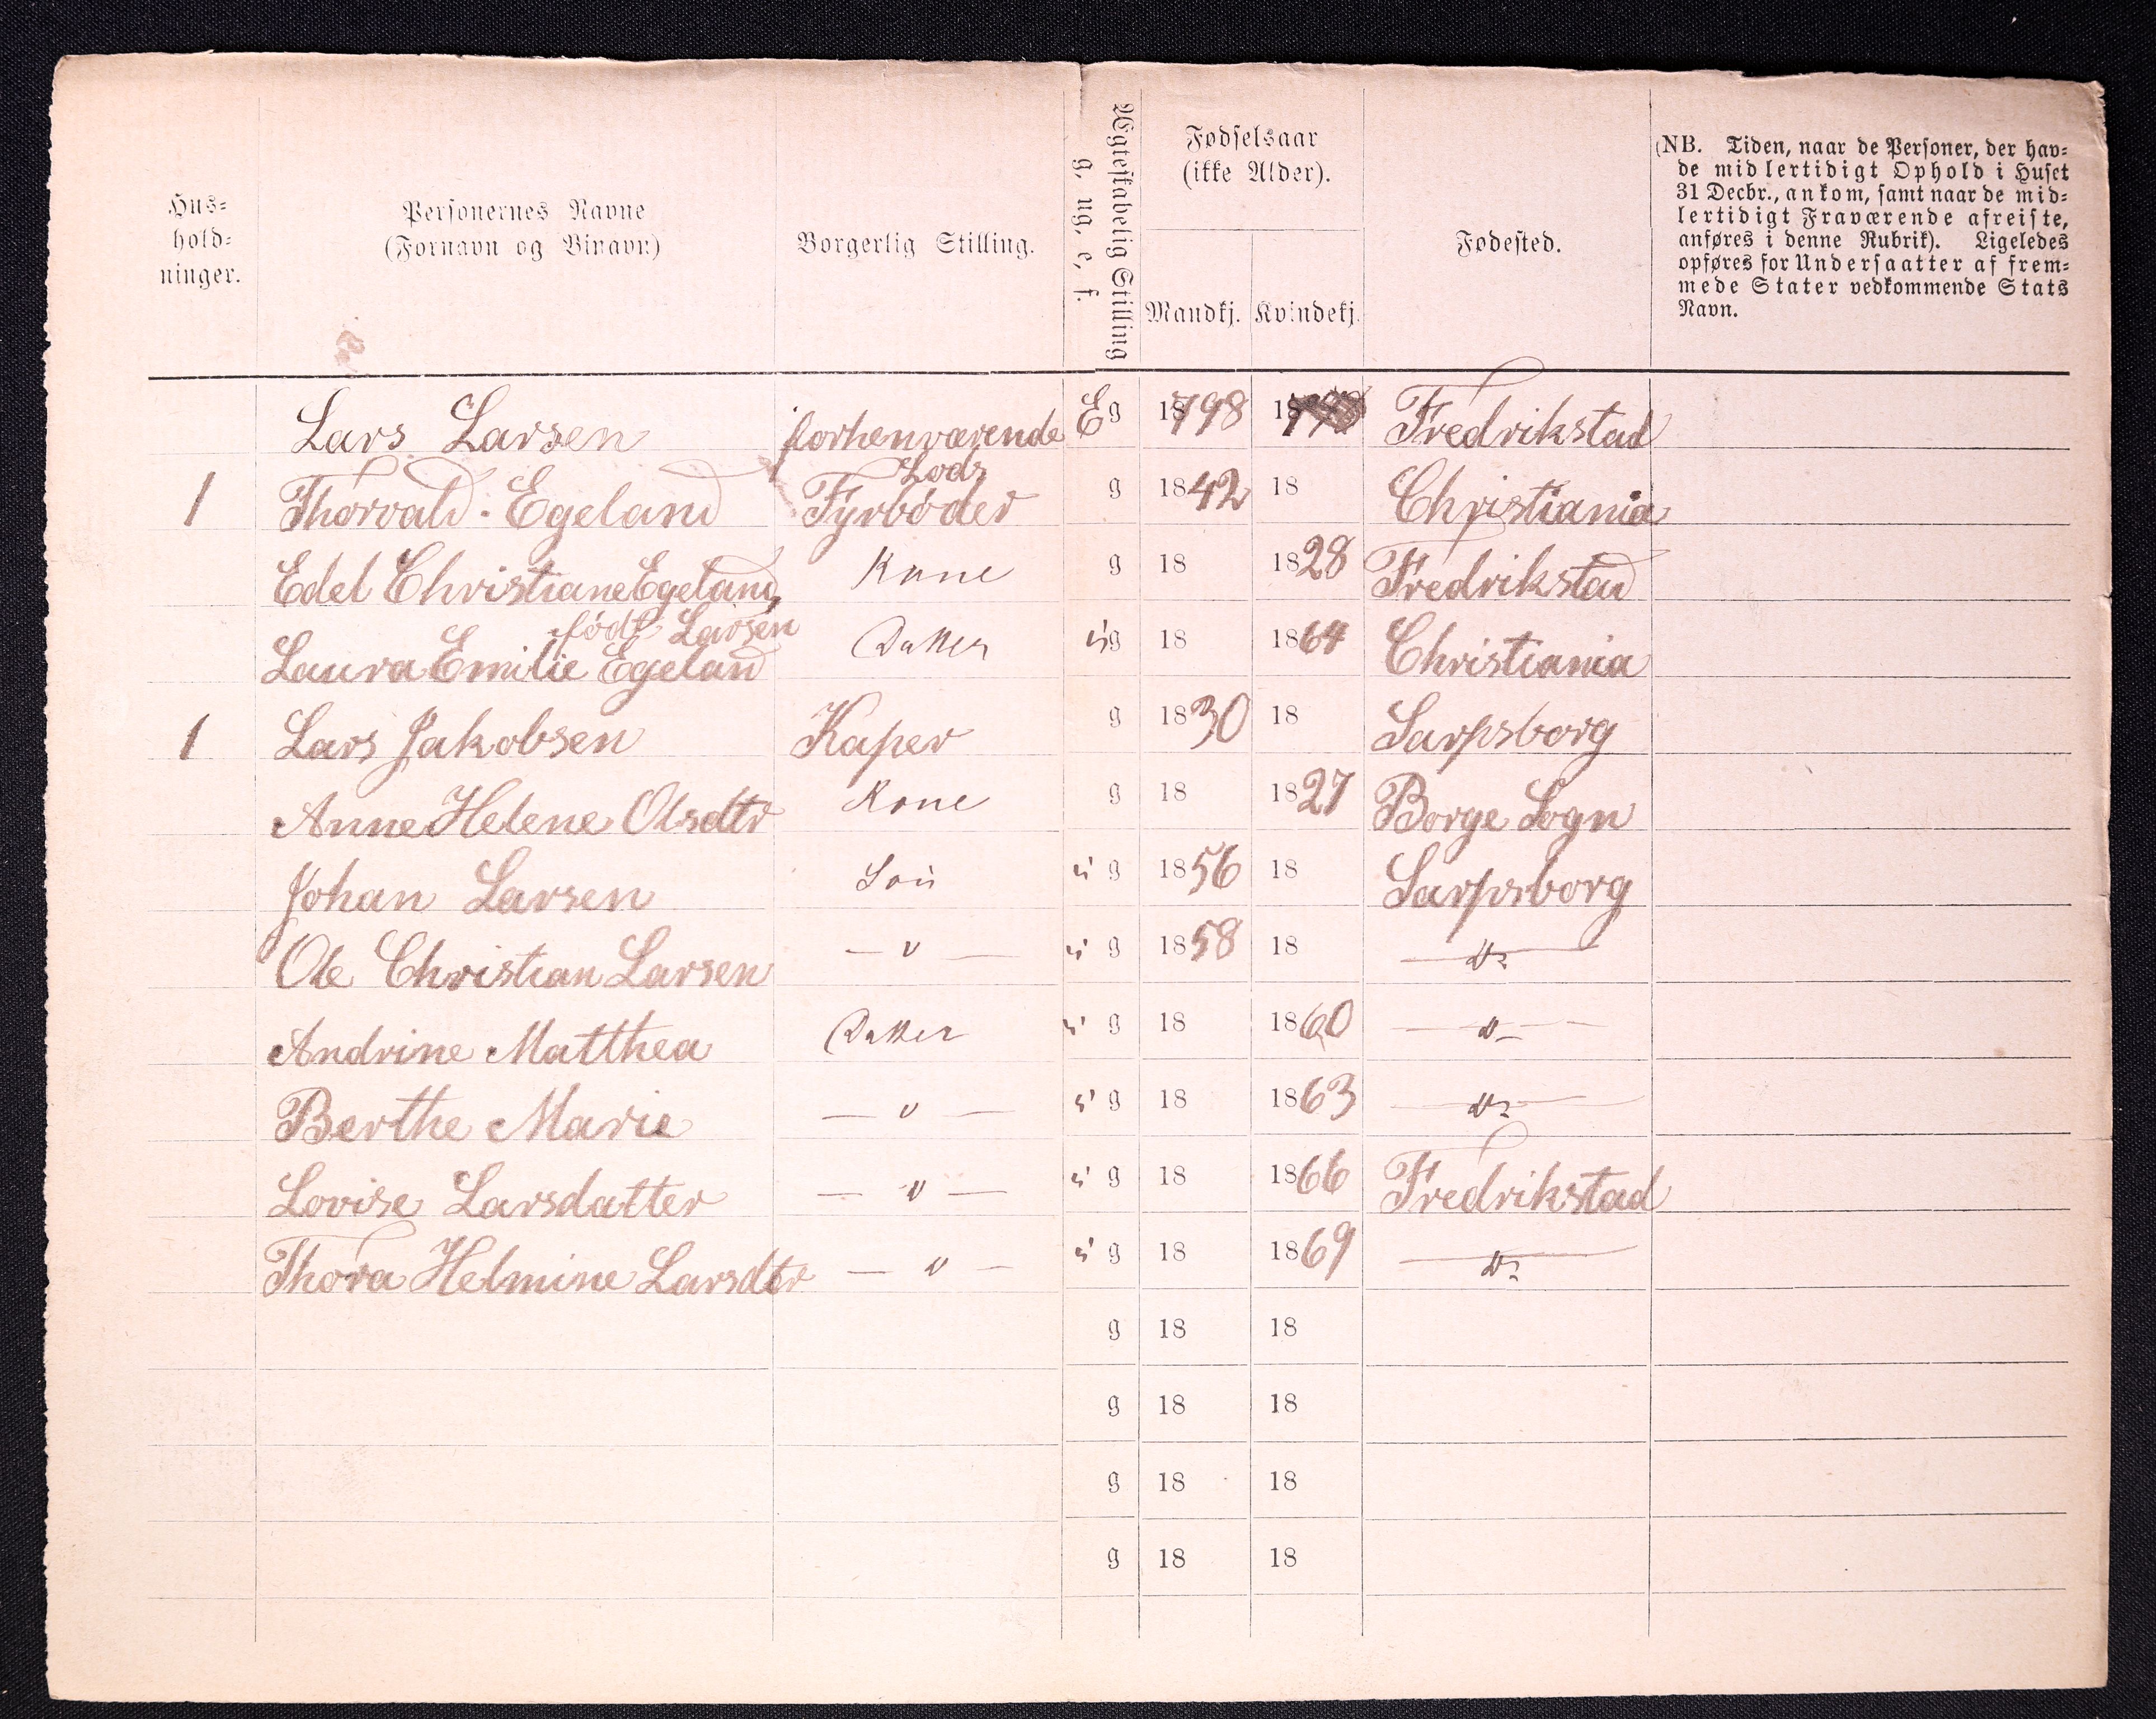 Hus-
hold-
ninger.
Personernes Navne
(Fornavn og Binavn)
Borgerlig Stilling.
Ægteskabelig Stilling
g, ug, e, f.
Fødselsaar
(ikke Alder).
Mandkj. Kvindekj.
Fødested.
(NB. Tiden, naar de Personer, der hav-
de midlertidigt Ophold i Huset
31 Decbr., ankom, samt naar de mid-
lertidigt Fraværende afreiste,
anføres i denne Rubrik). Ligeledes
opføres for Undersaatter af frem-
mede Stater vedkommende Stats
Navn.
Lars Larsen forhenværende E g 1798 Fredrikstad
Lods
1 Thorvald Egeland Fyrbøder g 1842 18 Christiania
Edel Christiane Egeland, Kone g 18 1828 Fredrikstad
født Larsen
Laura Emilie Egeland Datter ug 18 1864 Christiania
1 Lars Jakobsen Kaper g 1830 18 Sarpsborg
Anne Helene Olsdtr Kone g 18 1827 Borge Sogn
Johan Larsen Søn u g 1856 18 Sarpsborg
Ole Christian Larsen — " — u g 1858 18 — " —
Andrine Matthea Datter u g 18 1860 — " —
Berthe Marie — " — u g 18 1863 — " —
Lovise Larsdatter — " — u g 18 1866 Fredrikstad
Thora Helmine Larsdtr — " — u g 18 1869 — " —
g 18 18
g 18 18
g 18 18
g 18 18